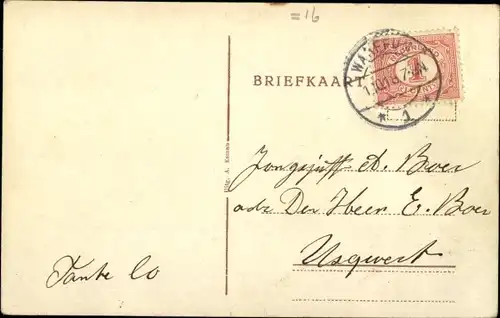 = 16
BRIEFKAART
1
CENT
1
Jongejuff. A. Boer
adr Den Heer E. Boer
Usqwert
Tante Co